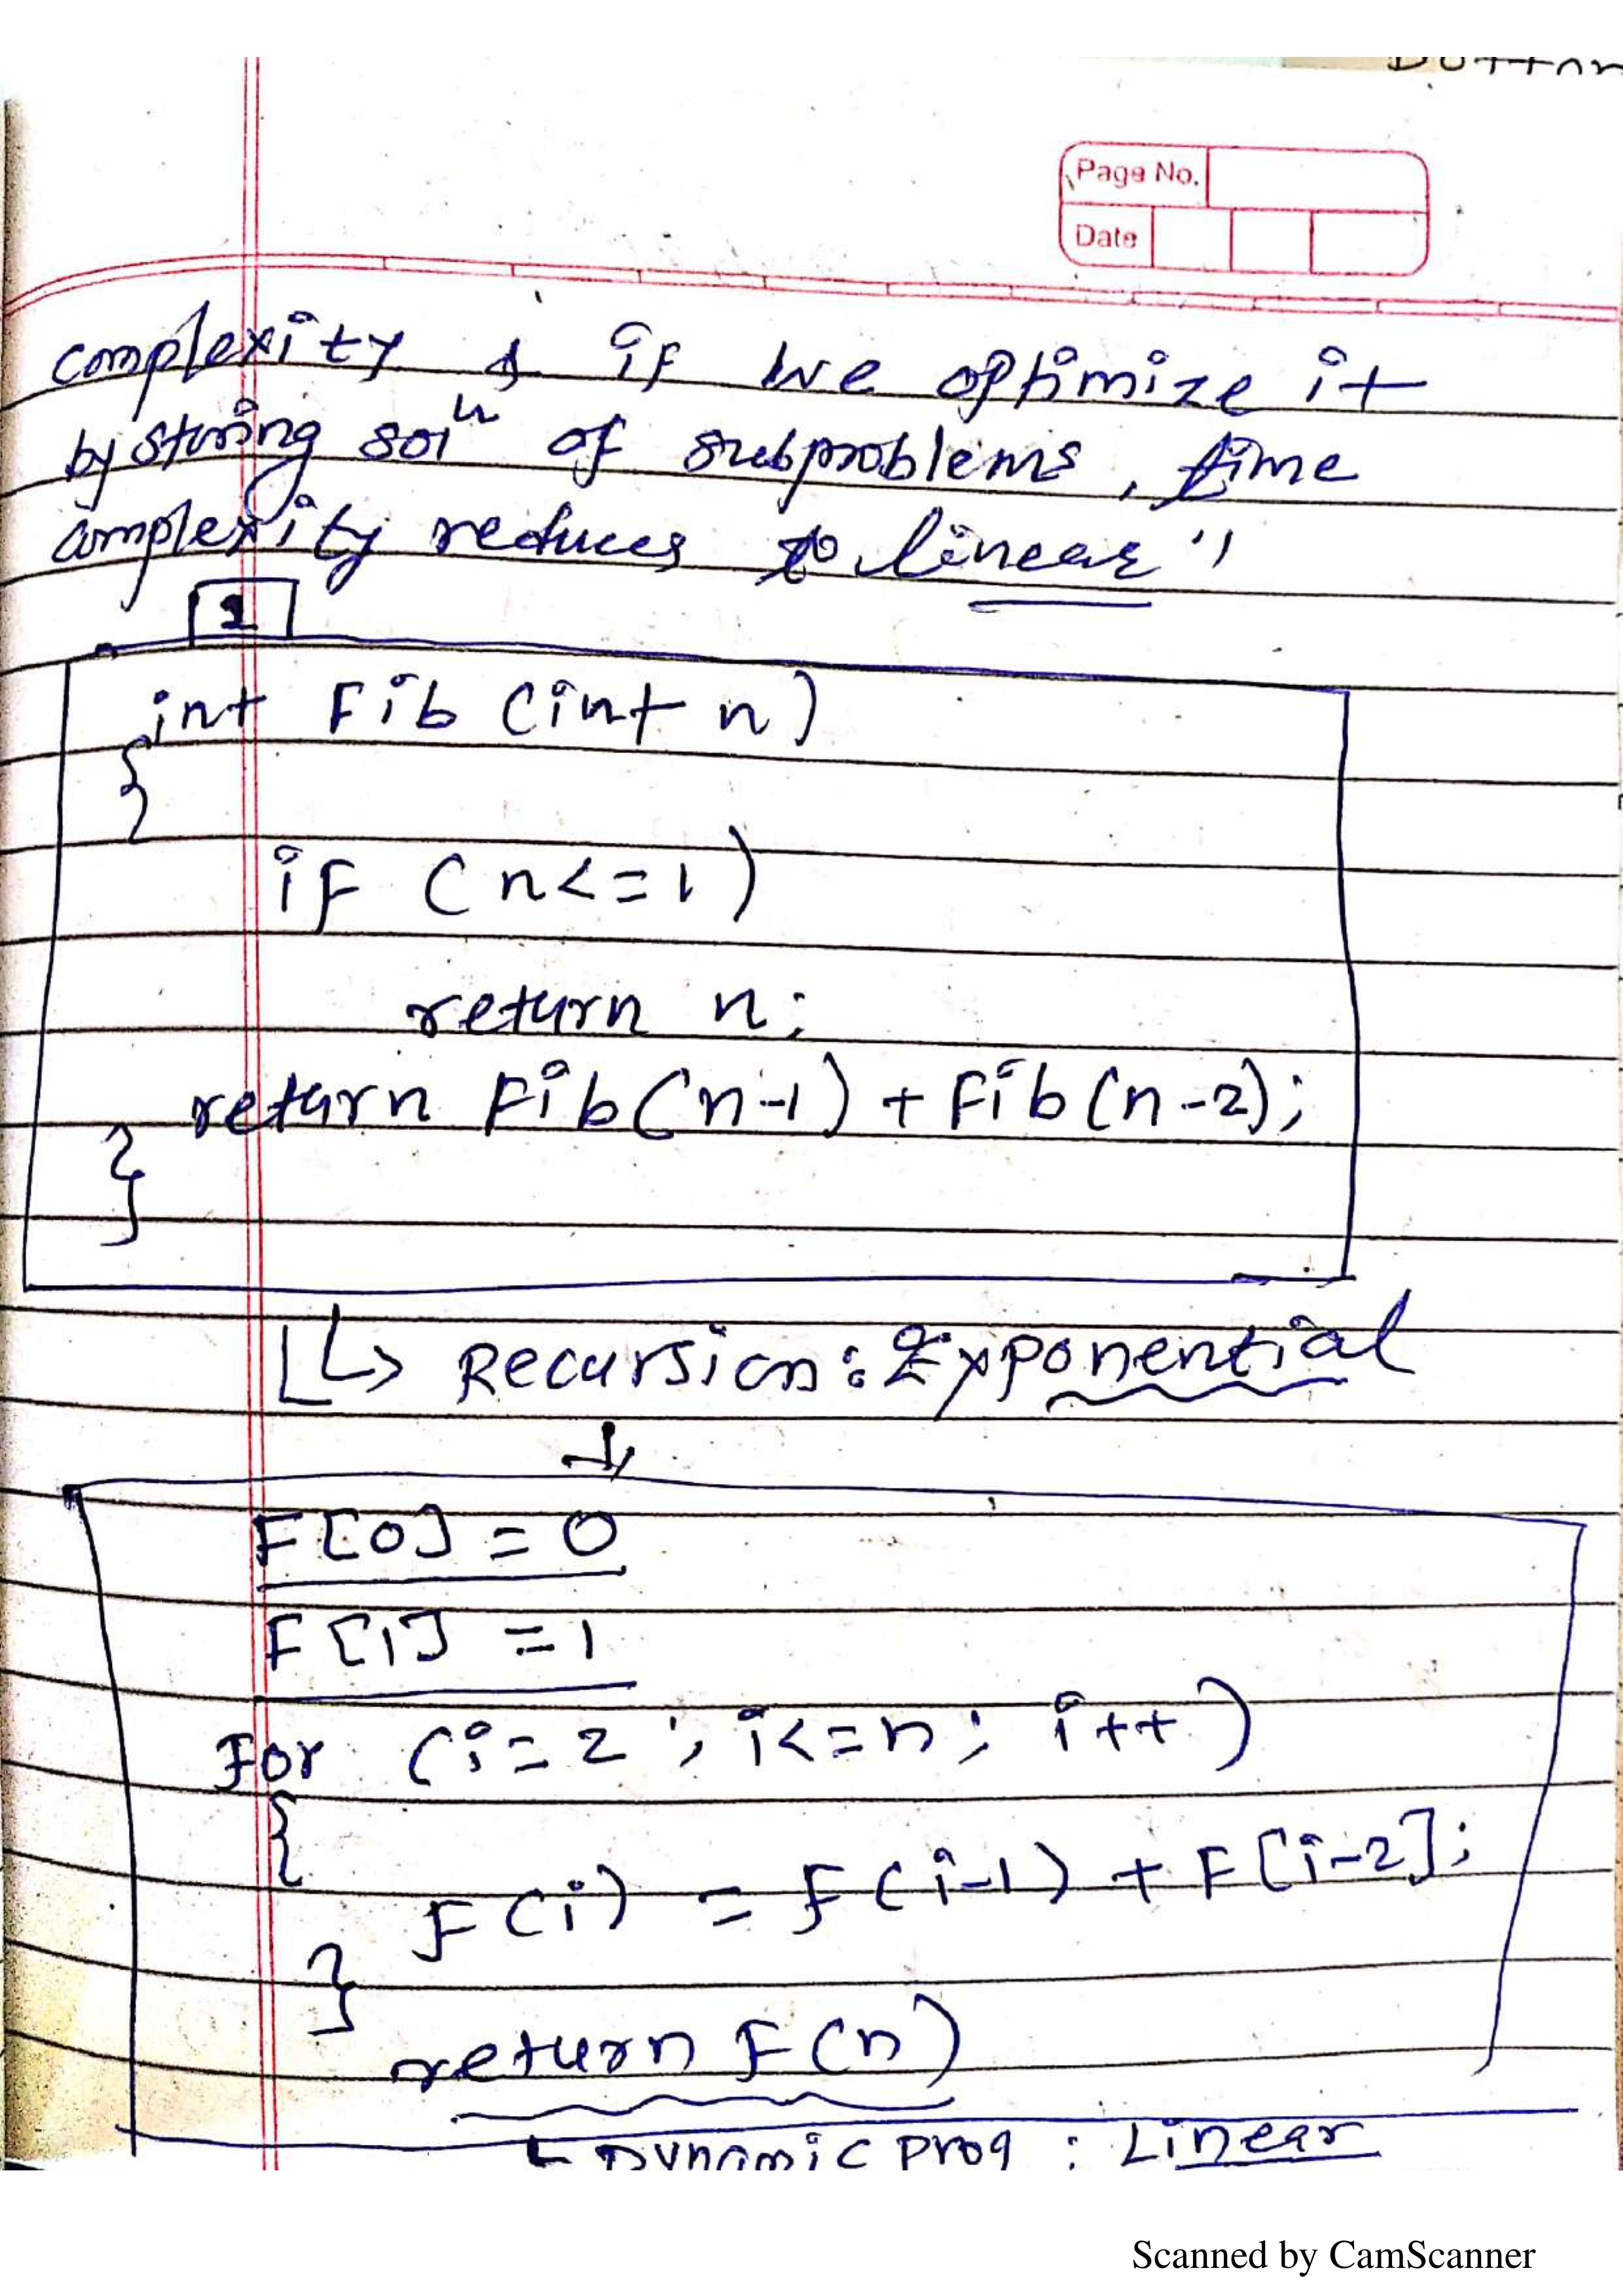 Page No.
Date
complexity & if we optimize it
by storing solⁿ of subproblems, time
complexity reduces to linear"
1
int Fib (int n)
{
if (n<=1)
return n;
return Fib(n-1) + Fib(n-2);
}
↳ Recursion : Exponential
↓
F[0] = 0
F[1] = 1
For (i=2 ; i<=n ; i++)
{
F(i) = F(i-1) + F[i-2];
}
return F(n)
↳ Dynamic prog : Linear
Scanned by CamScanner